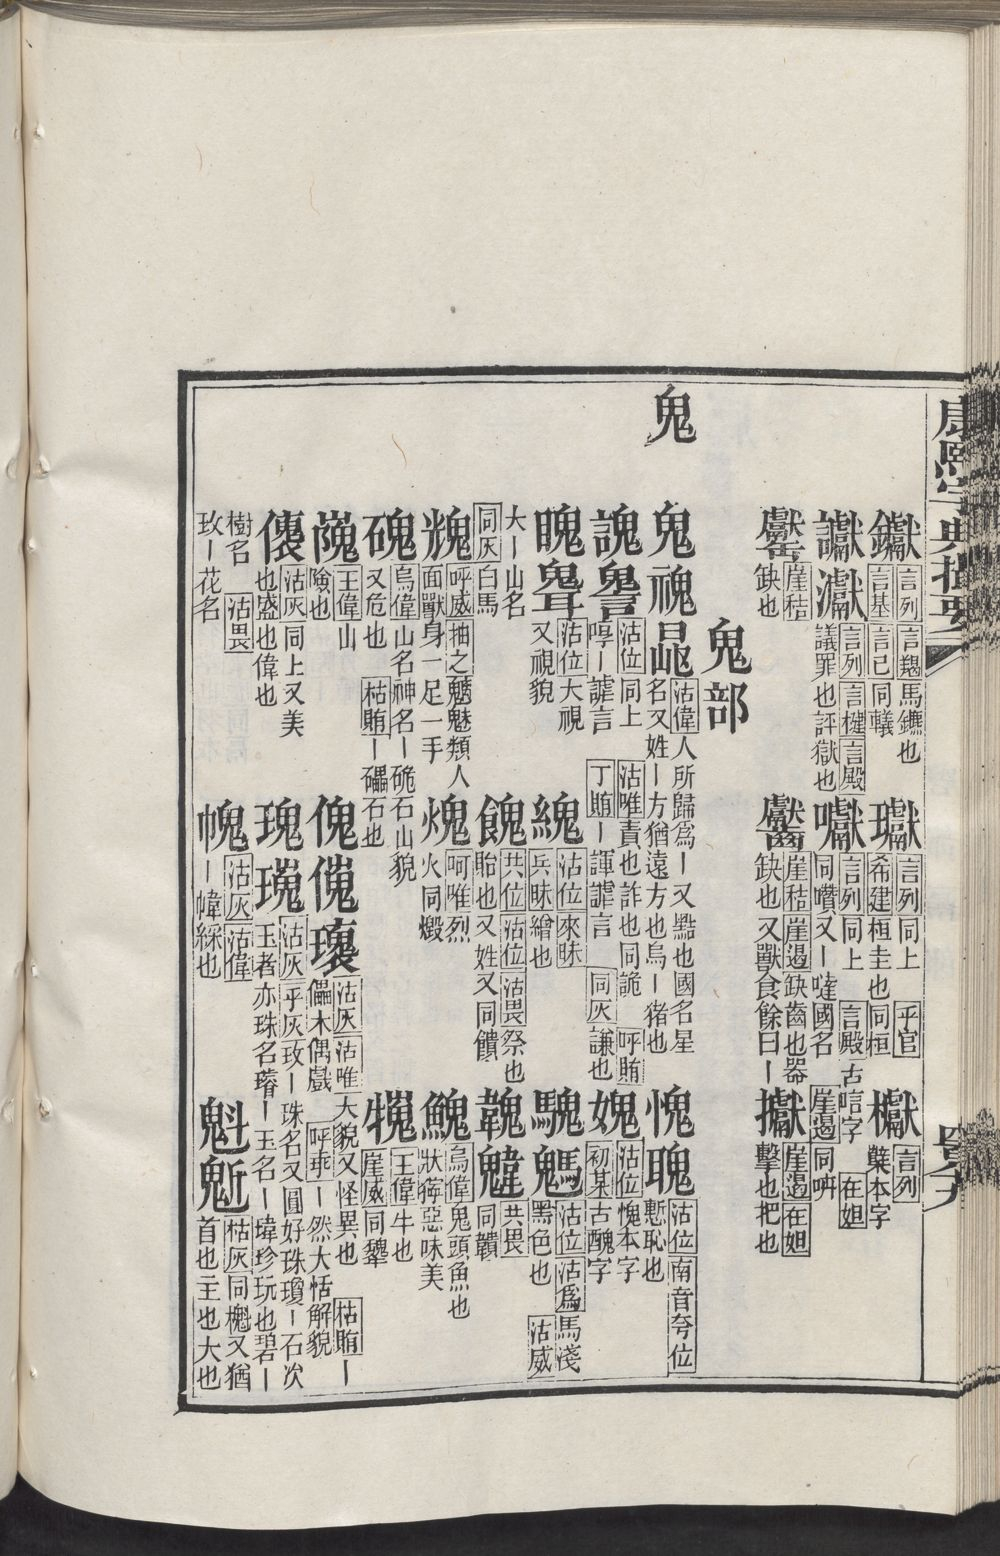 康熙字典撮要
鬼
钀 言列 言羯 馬鑣也 言基 言己 同轙
瓛 言列 同上 乎官 希建 桓圭也同桓
言列 櫱本字
讞 言列 言揵 言殿 議罪也評獄也
囐 言列 同上 言殿 古唁字 在妲 同囋又ー噠國名 崖遏 同
崖秸 缺也
崖秸 崖遏 缺齒也器 缺也又獸食餘曰ー
崖遏 在妲 擊也把也
鬼部
鬼 沽偉 人所歸為ー又㸃也國名星 名又姓ー方猶遠方也烏ー豬也
愧聭 沽位 南音夸位 慙恥也
謉 沽位 同上 沽唯 責也詐也同詭 呼賄 嘑ー謔言 丁賄 ー諢謔言 同灰 謙也
媿 沽位 愧本字 初某 古醜字
䁛 沽位 大視 又視貌
沽位 來昧 兵昧 繒也
騩 沽位 沽為 馬淺 黑色也 沽威
大ー山名 同灰 白馬
餽 共位 沽位 沽畏 祭也 貽也又姓又同饋
共畏 同韥
呼威 抽之魑魅類人 面獸身一足一手
呵唯 烈 火同燬
烏偉 鬼頭魚也 狀獰惡味美
磈 烏偉 山名神名ー硊石山貌 又危也 枯賄 ー礧石也
王偉 牛也 崖威 同犩
王偉 山 險也
傀 瓌 沽灰 沽唯 大貌又怪異也 枯賄 ー 儡木偶戲 呼乖 ー然大恬解貌
沽灰 同上又美 也盛也偉也
瑰 沽灰 乎灰 玫ー珠名又圓好珠瓊ー石次 玉者亦珠名璿ー玉名ー瑋珍玩也碧ー
樹名 沽畏 玫ー花名
沽灰 沽偉 ー幃綵也
魁 枯灰 同櫆又猶 首也主也大也